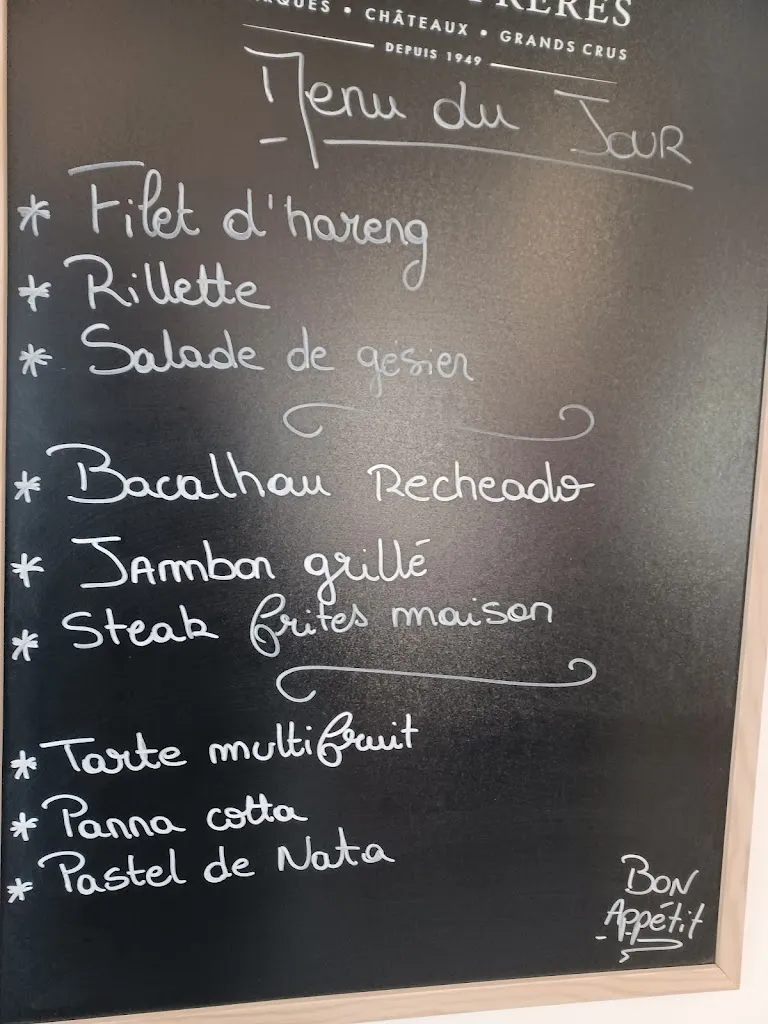 FRÈRES
• CHÂTEAUX • GRANDS CRUS
DEPUIS 1949
Menu du JOUR
* Filet d'hareng
* Rillette
* Salade de gésier
* Bacalhau Recheado
* JAmbon grillé
* Steak frites maison
* Tarte multifruit
* Panna cotta
* Pastel de Nata
BON
Appétit